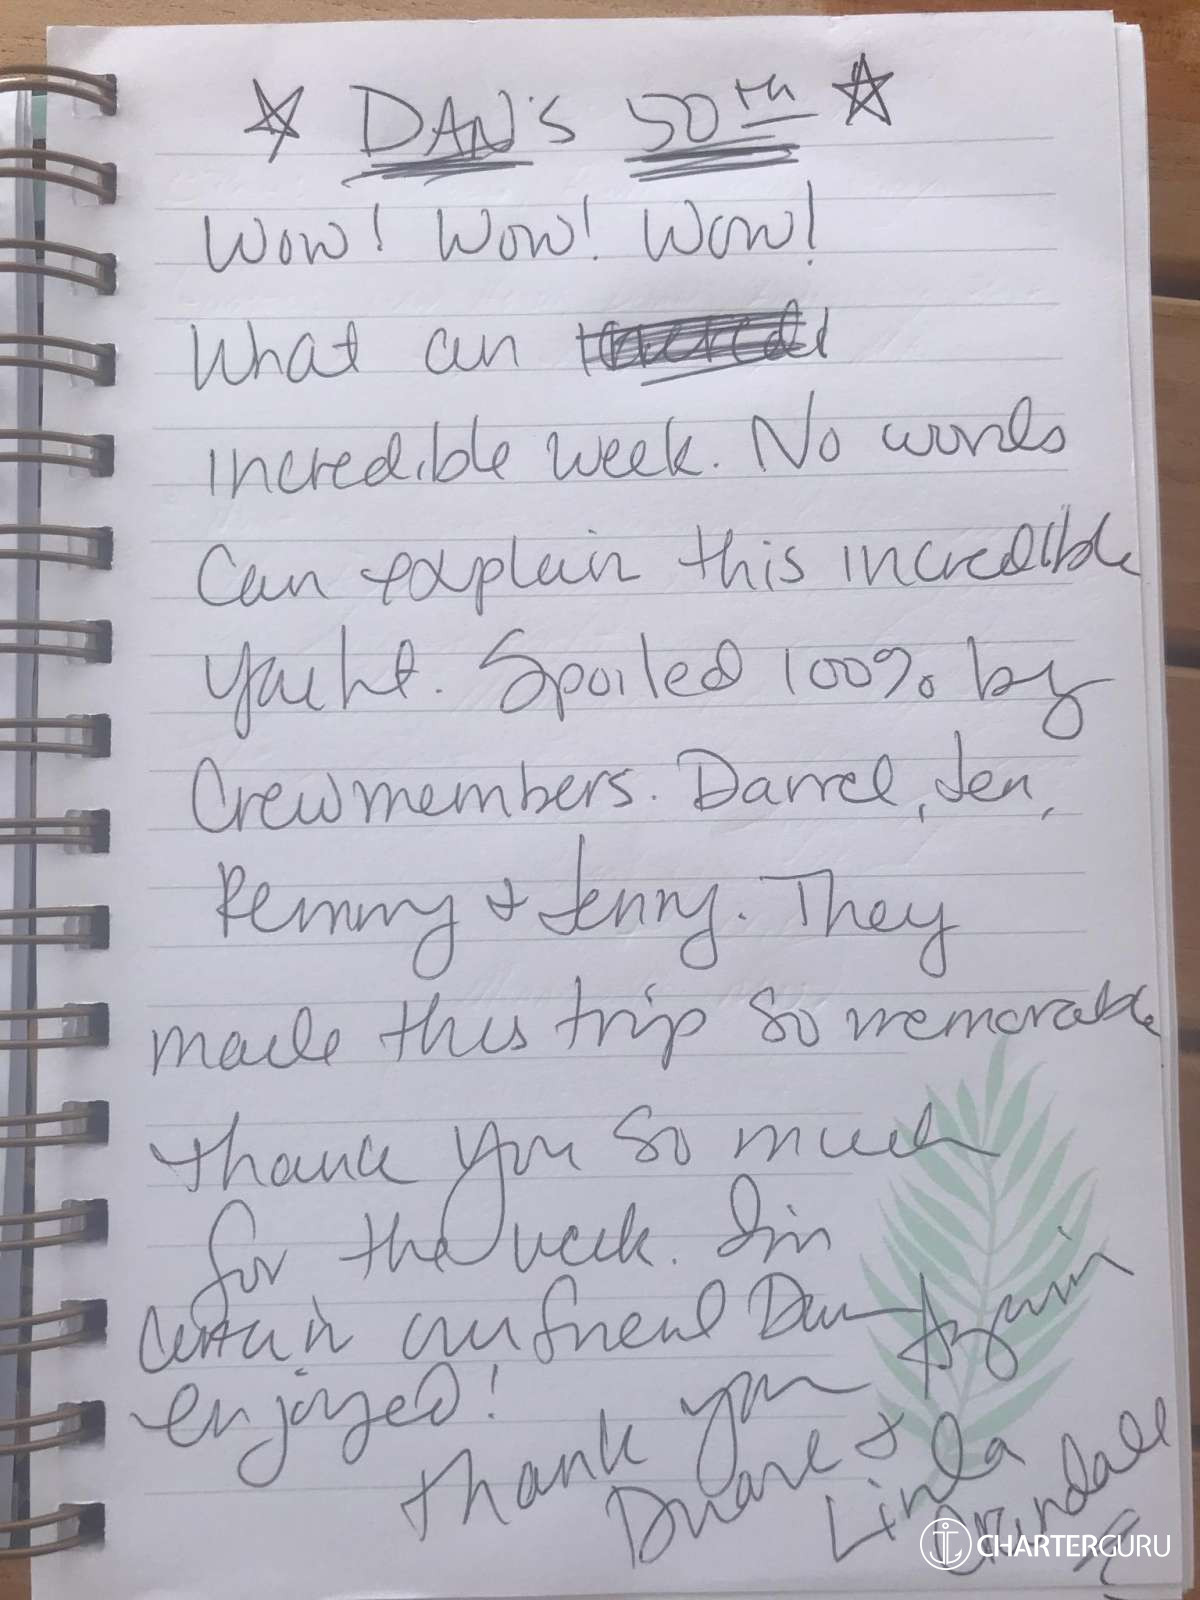 DAN'S 50th
Wow! Wow! Wow!
What an
incredible week. No words
Can explain this incredible
yacht. Spoiled 100% by
Crewmembers. Darrel, Jen,
Remmy & Jenny. They
made this trip so memorable
thank you so much
for the week. I'm
certain our friend Dan
enjoyed! Again
thank you
Duane &
Linda
CHARTERGURU